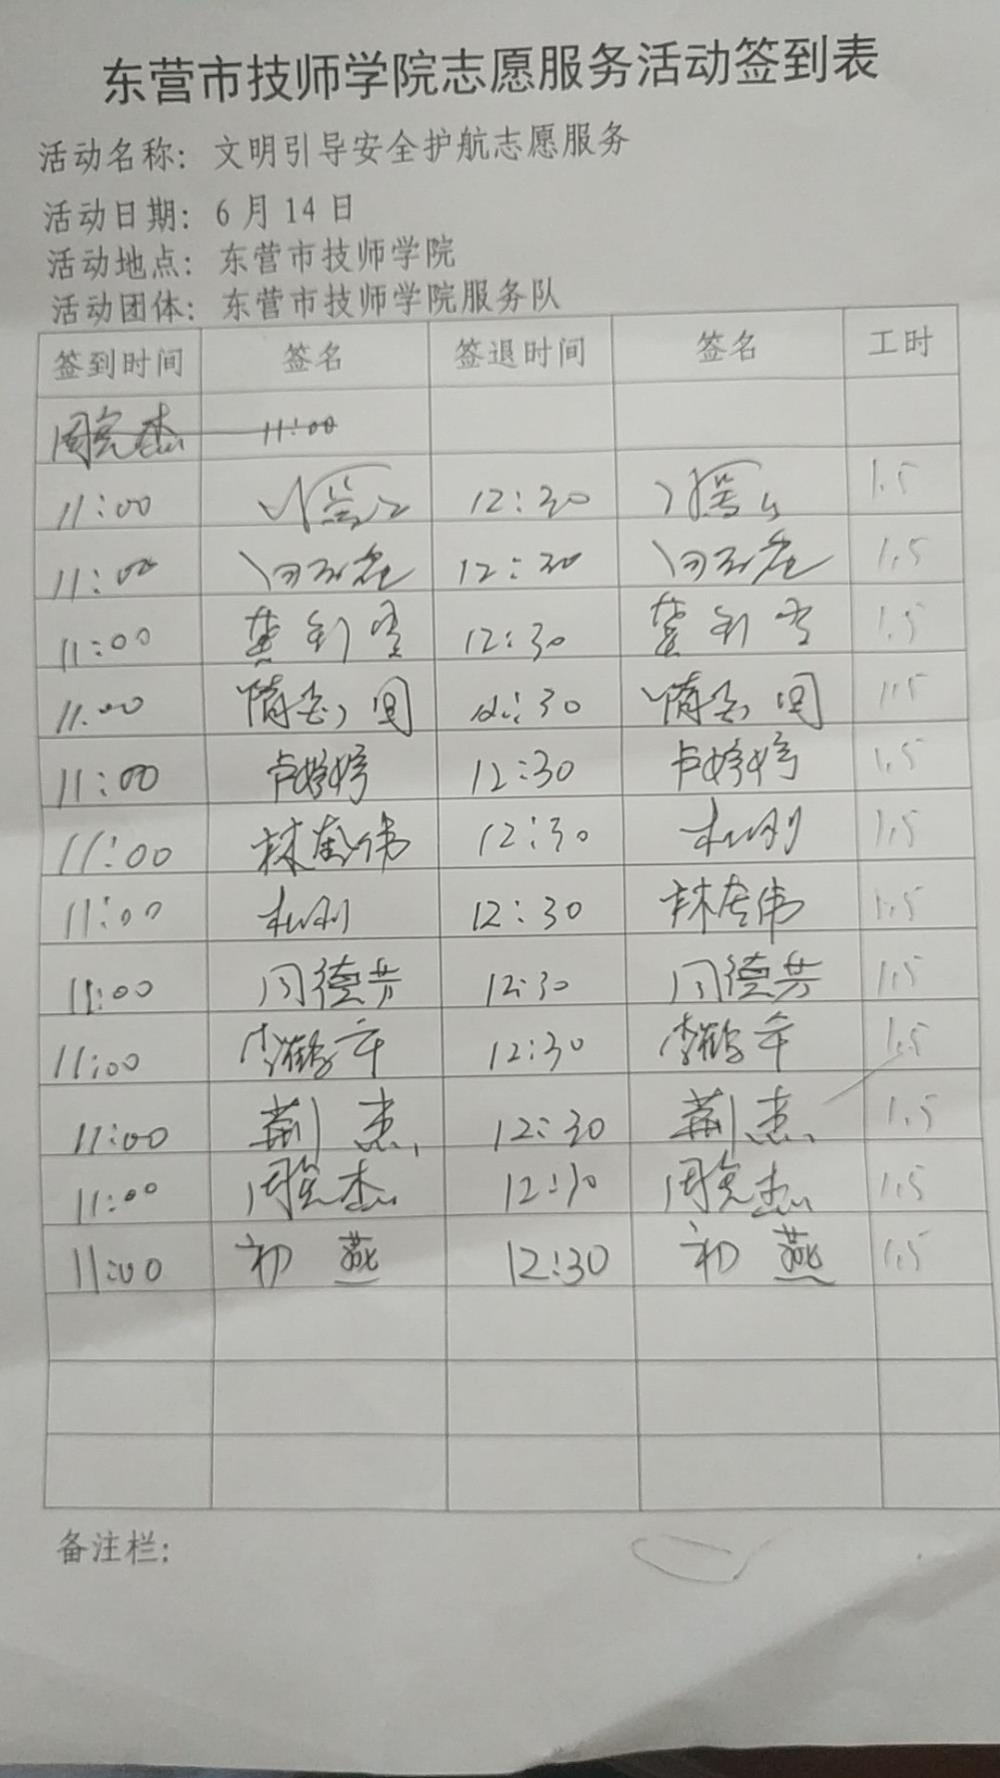 东营市技师学院志愿服务活动签到表
活动名称: 文明引导安全护航志愿服务
活动日期: 6月14日
活动地点: 东营市技师学院
活动团体: 东营市技师学院服务队
签到时间 签名 签退时间 签名 工时
11:00
11:00 12:30 1.5
11:00 12:30 1.5
11:00 12:30 1.5
11:00 12:30 1.5
11:00 卢婷婷 12:30 卢婷婷 1.5
11:00 12:30 1.5
11:00 12:30 1.5
11:00 闫德芳 12:30 闫德芳 1.5
11:00 李鹤年 12:30 李鹤年 1.5
11:00 荆杰 12:30 荆杰 1.5
11:00 12:30 1.5
11:00 初燕 12:30 初燕 1.5
备注栏: